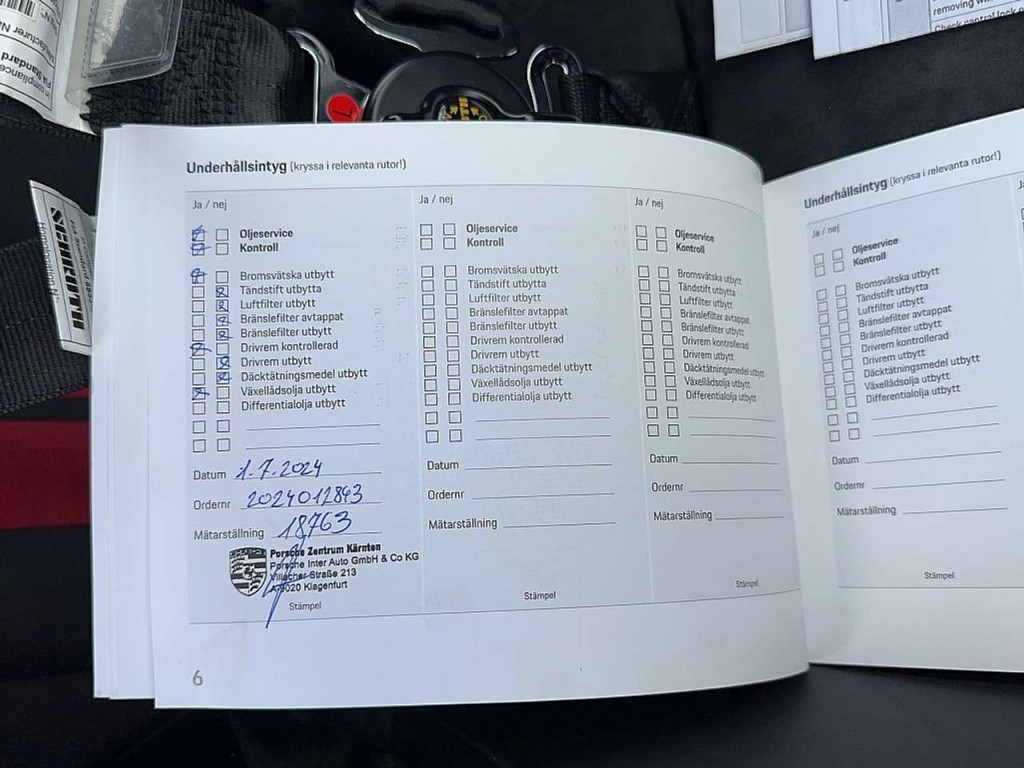 removing
Check central lock
Underhållsintyg (kryssa i relevanta rutor!)
Ja / nej
Oljeservice
Kontroll
Bromsvätska utbytt
Tändstift utbytta
Luftfilter utbytt
Bränslefilter avtappat
Bränslefilter utbytt
Drivrem kontrollerad
Drivrem utbytt
Däcktätningsmedel utbytt
Växellådsolja utbytt
Differentialolja utbytt
Datum 1.7.2024
Ordernr 2024012843
Mätarställning 18763
Porsche Zentrum Kärnten
Porsche Inter Auto GmbH & Co KG
Villacher Straße 213
A-9020 Klagenfurt
Stämpel
6
Ja / nej
Oljeservice
Kontroll
Bromsvätska utbytt
Tändstift utbytta
Luftfilter utbytt
Bränslefilter avtappat
Bränslefilter utbytt
Drivrem kontrollerad
Drivrem utbytt
Däcktätningsmedel utbytt
Växellådsolja utbytt
Differentialolja utbytt
Datum
Ordernr
Mätarställning
Stämpel
Ja / nej
Oljeservice
Kontroll
Bromsvätska utbytt
Tändstift utbytta
Luftfilter utbytt
Bränslefilter avtappat
Bränslefilter utbytt
Drivrem kontrollerad
Drivrem utbytt
Däcktätningsmedel utbytt
Växellådsolja utbytt
Differentialolja utbytt
Datum
Ordernr
Mätarställning
Stämpel
Underhållsintyg (kryssa i relevanta rutor!)
Ja / nej
Oljeservice
Kontroll
Bromsvätska utbytt
Tändstift utbytta
Luftfilter utbytt
Bränslefilter avtappat
Bränslefilter utbytt
Drivrem kontrollerad
Drivrem utbytt
Däcktätningsmedel utbytt
Växellådsolja utbytt
Differentialolja utbytt
Datum
Ordernr
Mätarställning
Stämpel